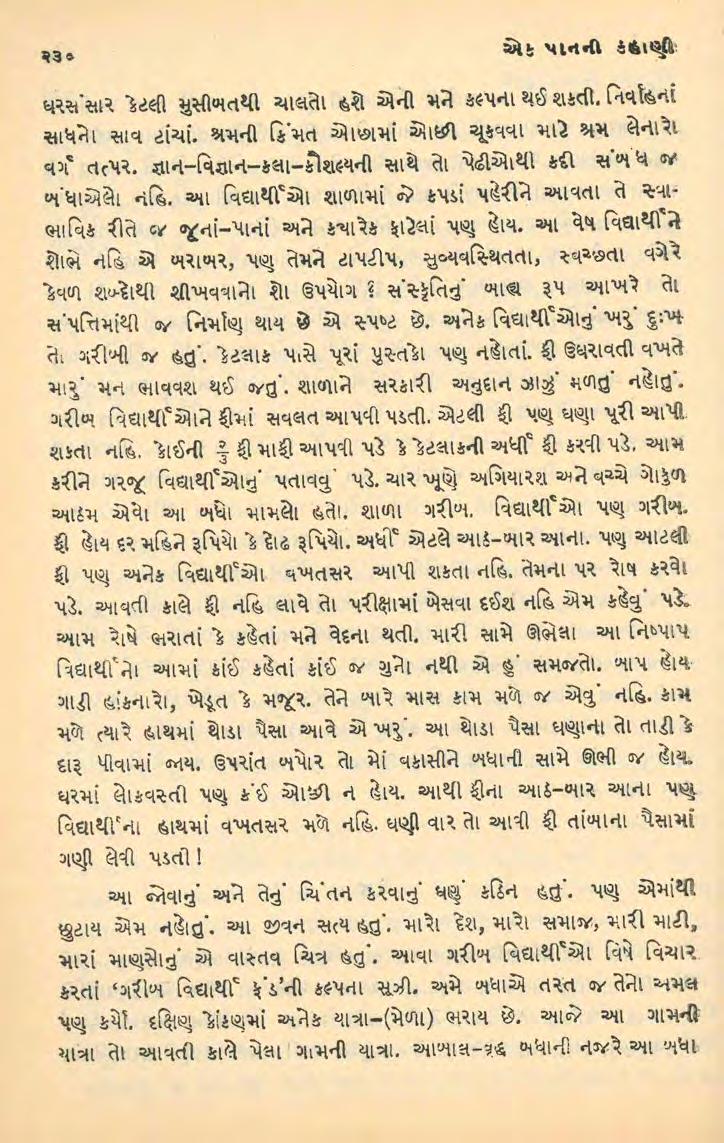 ૨૩૦
એક પાનની કહાણી
ઘરસંસાર કેટલી મુસીબતથી ચાલતો હશે એની મને કલ્પના થઈ શકતી. નિર્વાહનાં
સાધનો સાવ ટાંચાં. શ્રમની કિંમત ઓછામાં ઓછી ચૂકવવા માટે શ્રમ લેનારો
વર્ગ તત્પર. જ્ઞાન–વિજ્ઞાન–કલા–કૌશલ્યની સાથે તો પેઢીઓથી કદી સંબંધ જ
બંધાએલો નહિ. આ વિદ્યાર્થીઓ શાળામાં જે કપડાં પહેરીને આવતા તે સ્વા-
ભાવિક રીતે જ જૂનાં–પાનાં અને ક્યારેક ફાટેલાં પણ હોય. આ વેષ વિદ્યાર્થીને
શોભે નહિ એ બરાબર, પણ તેમને ટાપટીપ, સુવ્યવસ્થિતતા, સ્વચ્છતા વગેરે
કેવળ શબ્દોથી શીખવવાનો શો ઉપયોગ ? સંસ્કૃતિનું બાહ્ય રૂપ આખરે તો
સંપત્તિમાંથી જ નિર્માણ થાય છે એ સ્પષ્ટ છે. અનેક વિદ્યાર્થીઓનું ખરું દુઃખ
તો ગરીબી જ હતું. કેટલાક પાસે પૂરાં પુસ્તકો પણ નહોતાં. ફી ઉઘરાવતી વખતે
મારું મન ભાવવશ થઈ જતું. શાળાને સરકારી અનુદાન ઝાઝું મળતું નહોતું.
ગરીબ વિદ્યાર્થીઓને ફીમાં સવલત આપવી પડતી. એટલી ફી પણ ઘણા પૂરી આપી
શકતા નહિ. કોઈની ૨/૩ ફી માફી આપવી પડે કે કેટલાકની અર્ધી ફી કરવી પડે. આમ
કરીને ગરજૂ વિદ્યાર્થીઓનું પતાવવું પડે. ચાર ખૂણે અગિયારશ અને વચ્ચે ગોકુળ
આઠમ એવો આ બધો મામલો હતો. શાળા ગરીબ. વિદ્યાર્થીઓ પણ ગરીબ.
ફી હોય દર મહિને રૂપિયો કે દોઢ રૂપિયો. અર્ધી એટલે આઠ–બાર આના. પણ આટલી
ફી પણ અનેક વિદ્યાર્થીઓ વખતસર આપી શકતા નહિ. તેમના પર રોષ કરવો
પડે. આવતી કાલે ફી નહિ લાવે તો પરીક્ષામાં બેસવા દઈશ નહિ એમ કહેવું પડે.
આમ રોષે ભરાતાં કે કહેતાં મને વેદના થતી. મારી સામે ઊભેલા આ નિષ્પાપ
વિદ્યાર્થીનો આમાં કાંઈ કહેતાં કાંઈ જ ગુનો નથી એ હું સમજતો. બાપ હોય
ગાડી હાંકનારો, ખેડૂત કે મજૂર. તેને બારે માસ કામ મળે જ એવું નહિ. કામ
મળે ત્યારે હાથમાં થોડા પૈસા આવે એ ખરું. આ થોડા પૈસા ઘણાના તો તાડી કે
દારૂ પીવામાં જાય. ઉપરાંત બપોર તો મોં વકાસીને બધાની સામે ઊભી જ હોય.
ઘરમાં લોકવસ્તી પણ કંઈ ઓછી ન હોય. આથી ફીના આઠ–બાર આના પણ
વિદ્યાર્થીના હાથમાં વખતસર મળે નહિ. ઘણી વાર તો આવી ફી તાંબાના પૈસામાં
ગણી લેવી પડતી !
આ જોવાનું અને તેનું ચિંતન કરવાનું ઘણું કઠિન હતું. પણ એમાંથી
છુટાય એમ નહોતું. આ જીવન સત્ય હતું. મારો દેશ, મારો સમાજ, મારી માટી,
મારાં માણસોનું એ વાસ્તવ ચિત્ર હતું. આવા ગરીબ વિદ્યાર્થીઓ વિષે વિચાર
કરતાં ‘ગરીબ વિદ્યાર્થી ફંડ’ની કલ્પના સૂઝી. અમે બધાએ તરત જ તેનો અમલ
પણ કર્યો. દક્ષિણ કોંકણમાં અનેક યાત્રા–(મેળા) ભરાય છે. આજે આ ગામની
યાત્રા તો આવતી કાલે પેલા ગામની યાત્રા. આબાલ–વૃદ્ધ બધાની નજરે આ બધા